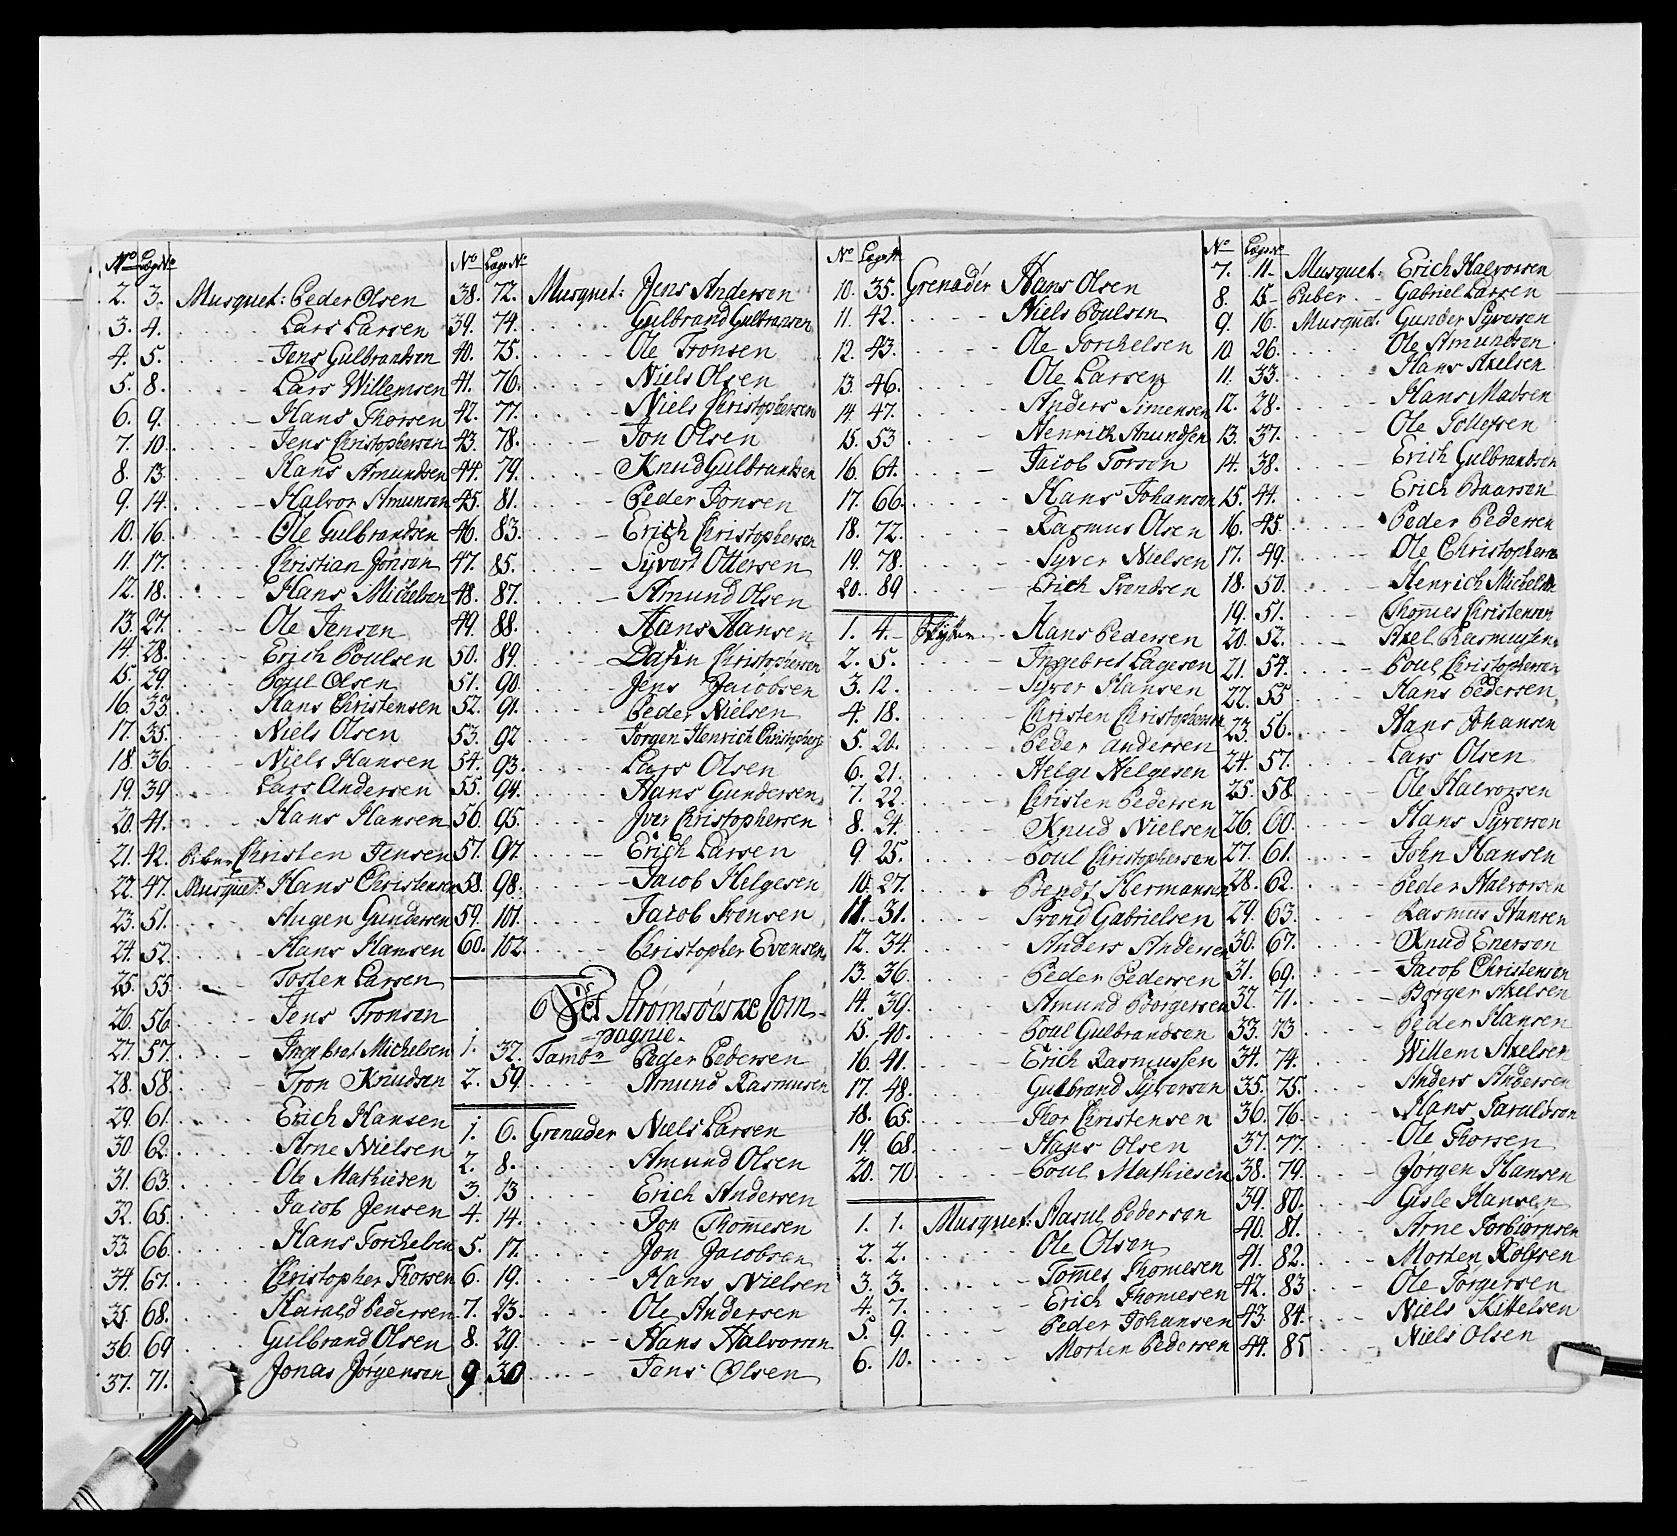 No Lage No
2. 3. Musquet: Peder Olsen
3. 4. Lars Larsen
4. 5. Jens Gulbrandsen
5. 8. Lars Willemsen
6. 9. Hans Thorsen
7. 10. Jens Christophersen
8. 13. Hans Amundsen
9. 14. Halvor Amunsen
10. 16. Ole Gulbrandsen
11. 17. Christian Jonsen
12. 18. Hans Michelsen
13. 27. Ole Jensen
14. 28. Erich Poulsen
15. 29. Poul Olsen
16. 33. Hans Christensen
17. 35. Niels Olsen
18. 36. Niels Hansen
19. 39. Lars Andersen
20. 41. Hans Hansen
21. 42. Piber Christen Jensen
22. 47. Musquet: Hans Christensen
23. 51. Augen Gundersen
24. 52. Hans Hansen
25. 55. Tosten Larsen
26. 56. Jens Tronsen
27. 57. Ingebret Michelsen
28. 58. Tron Knudsen
29. 61. Erich Hansen
30. 62. Arne Nielsen
31. 63. Ole Mathiesen
32. 65. Jacob Jensen
33. 66. Hans Torchelsen
34. 67. Christopher Thorsen
35. 68. Harald Pedersen
36. 69. Gulbrand Olsen
37. 71. Jonas Jørgensen
No Lage No
38. 72. Musquet: Jens Andersen
39. 74. Gulbrand Gulbransen
40. 75. Ole Tronsen
41. 76. Niels Olsen
42. 77. Niels Christophersen
43. 78. Jon Olsen
44. 79. Knud Gulbrandsen
45. 81. Peder Jonsen
46. 83. Erich Christophersen
47. 85. Syvert Ottersen
48. 87. Amund Olsen
49. 88. Hans Hansen
50. 89. Christophersen
51. 90. Jens Jacobsen
52. 91. Peder Nielsen
53. 92 Jørgen Henrich Christophers
54. 93. Lars Olsen
55. 94. Hans Gundersen
56. 95. Iver Christophersen
57. 97. Erich Larsen
58. 98. Jacob Helgesen
59. 101. Jacob Tronsen
60. 102. Christopher Evensen
6 Det Strømsøeske Com-
=pagnie.
1. 32. Tambr Peder Pedersen
2. 59. Amund Rasmusen
1. 6. Grenader Niels Larsen
2. 8. Amund Olsen
3. 13 Erich Andersen
4. 14. Jon Thomesen
5. 17. Jon Jacobsen
6. 19. Hans Nielsen
7. 23. Ole Andersen
8. 29. Hans Halvorsen
9 30 Jens Olsen
No Lage N
10. 35. Grenader Hans Olsen
11. 42. Niels Poulsen
12. 43. Ole Torchelsen
13 46. Ole Larsen
14 47. Anders Simensen
15. 53 Henrich Amundsen
16 64. Jacob Torsen
17. 66. Hans Johansen
18. 72. Rasmus Olsen
19. 78. Syver Nielsen
20. 89 Erich Trondsen
1. 4. Skytter Hans Pedersen
2. 5. Ingebret Lagesen
3. 12. Syver Hansen
4. 18. Christen Christophersen
5. 20. Peder Andersen
6. 21. Helge Helgesen
7. 22. Christen Pedersen
8. 24. Knud Nielsen
9 25. Poul Christophersen
10. 27. Bendt Hermansen
11. 31. Trond Gabrielsen
12. 34. Anders Andersen
13. 36. Peder Pedersen
14. 39. Amund Borgersen
15. 40. Poul Gulbrandsen
16. 41. Erich Rasmussen
17. 48. Gulbrand Syversen
18. 65. Thor Christensen
19. 68. Hans Olsen
20. 70. Poul Mathiesen
1. 1. Musquet: Pedersen
2. 2. Ole Olsen
3. 3. Tomes Thomesen
4. 7. Erich Thomesen
5. 9. Peder Johansen
6. 10. Morten Pedersen
No Lage No
7. 11. Musquet: Erich Halvorsen
8. 15 Piber Gabriel Larsen
9. 16. Musquet. Gunder Syversen
10. 26. Ole Amundsen
11. 33. Hans Axelsen
12. 28. Hans Madsen
13. 37. Ole Tollefsen
14. 38. Erich Gulbrandsen
15. 44. Erich Baarsen
16. 45. Peder Pedersen
17. 49. Ole Christophersen
18. 50. Henrich Michelsen
19. 51. Thomes Christensen
20. 52. Axel Rasmussen
21. 54. Poul Christophersen
22. 55 Hans Pedersen
23. 56. Hans Johansen
24. 57. Lars Olsen
25. 58. Ole Halvorsen
26. 60. Hans Syversen
27. 61. John Hansen
28. 62. Peder Halvorsen
29. 63. Rasmus Hansen
30. 67. Knud Enersen
31. 69. Jacob Christensen
32. 71. Børger Axelsen
33. 73 Peder Hansen
34. 74. Willem Axelsen
35. 75. Anders Andersen
36. 76. Hans Taraldsen
37. 77. Ole Thorsen
38. 79. Jørgen Hansen
39. 80. Gisle Hansen
40. 81. Arne Torbiørnsen
41. 82. Morten Rolfsen
42. 83 Ole Torgersen
43. 84. Niels Kittelsen
44. 85 Niels Olsen